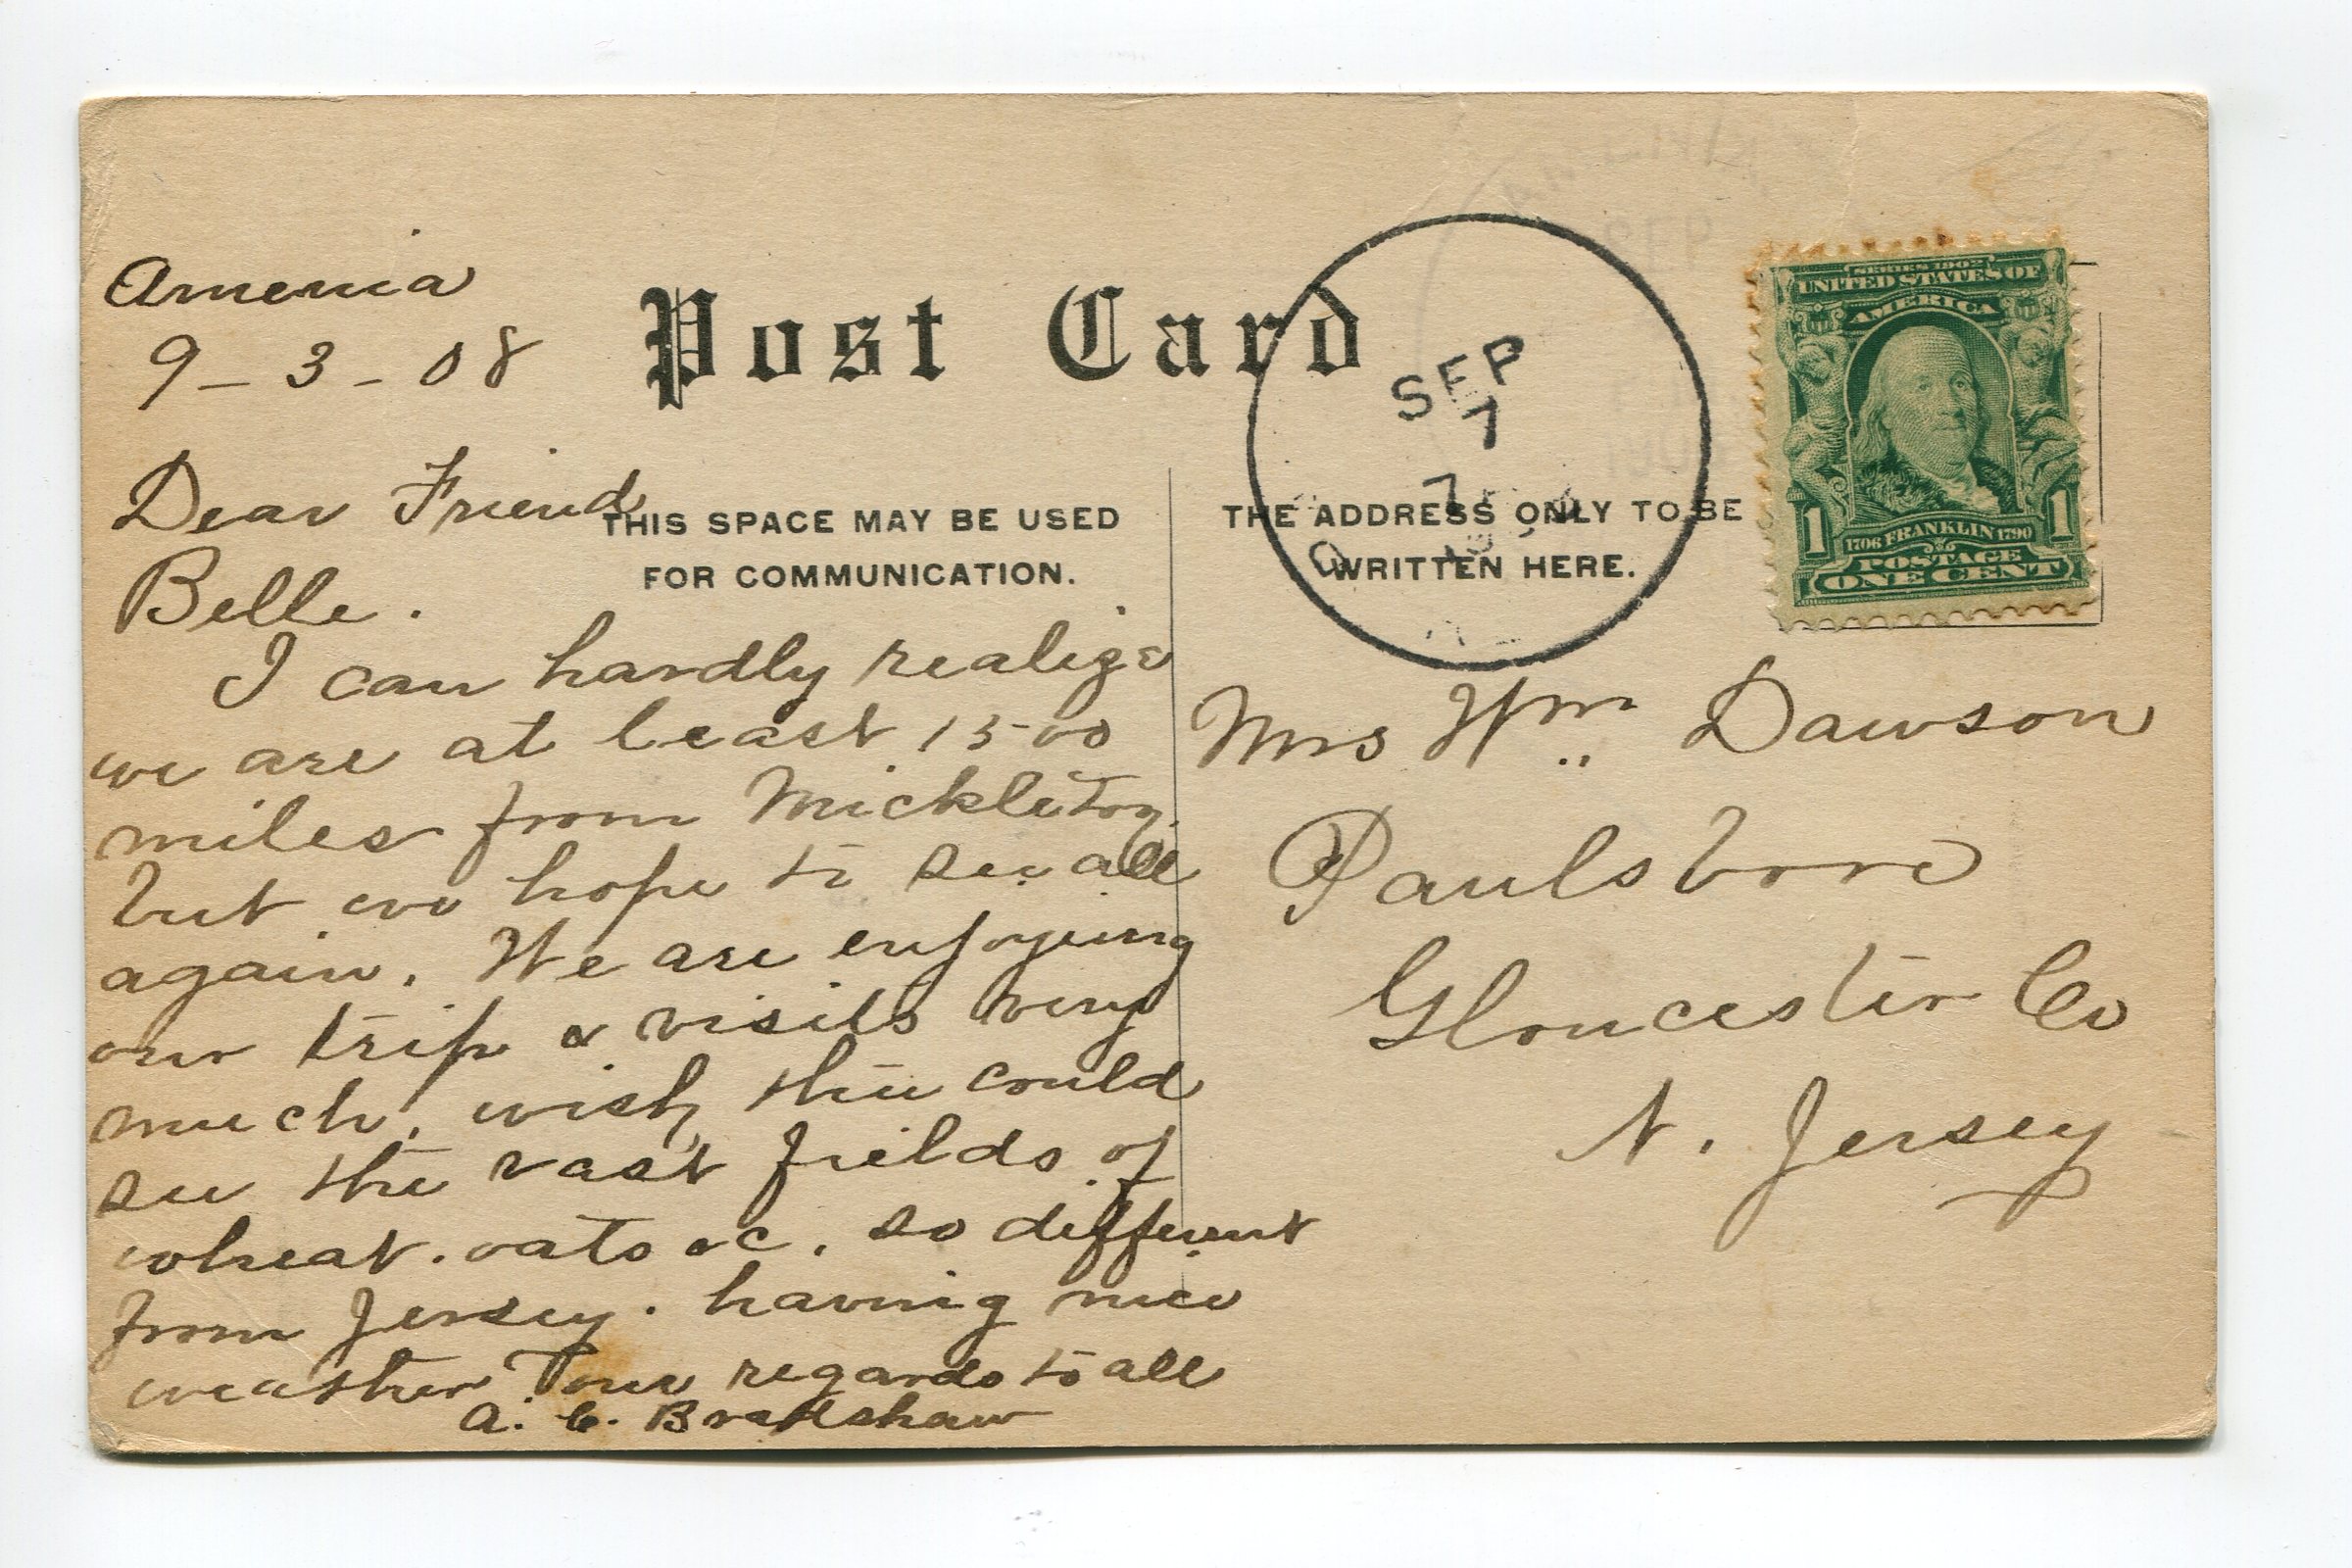 Amenia
9 - 3 - 08
Post Card
Dear Friend
Belle.
THIS SPACE MAY BE USED
FOR COMMUNICATION.
I can hardly realize
we are at least 1500
miles from Mickleton,
but we hope to see all
again. We are enjoying
our trip & visits very
much, wish thee could
see the vast fields of
wheat. oats &c. so different
from Jersey. having nice
weather our regards to all
A. C. Bradshaw
SEP
7
7
THE ADDRESS ONLY TO BE
WRITTEN HERE.
AMENIA
SEP
SERIES 1902
UNITED STATES OF
AMERICA
1706 FRANKLIN 1790
1 1
POSTAGE
ONE CENT
Mrs Wm. Dawson
Paulsboro
Gloucester Co
N. Jersey